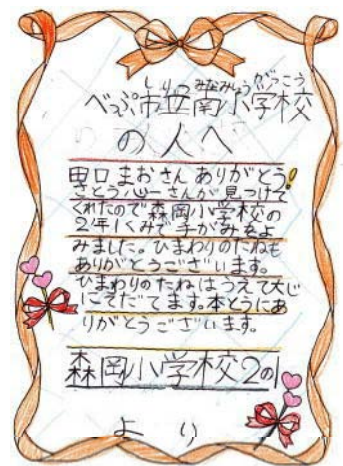 しりつみなみしょうがっこう
べっぷ市立南小学校
の人へ
田口まおさんありがとう!
さとう心一さんが見つけて
くれたので森岡小学校の
2年1くみで手がみをよ
みました。ひまわりのたねも
ありがとうございます。
ひまわりのたねはうえて大じ
にそだてます。本とうにあ
りがとうございます。
森岡小学校2の1
より